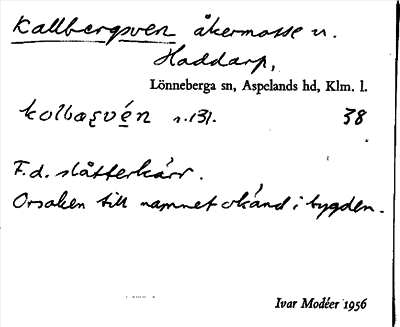 Kallbergsven åkermosse v.
Haddarp,
Lönneberga sn, Aspelands hd, Klm. l.
kolbaꞓvé̱n s. 131. 38
F.d. slåtterkärr.
Orsaken till namnet okänd i bygden.
Ivar Modéer 1956